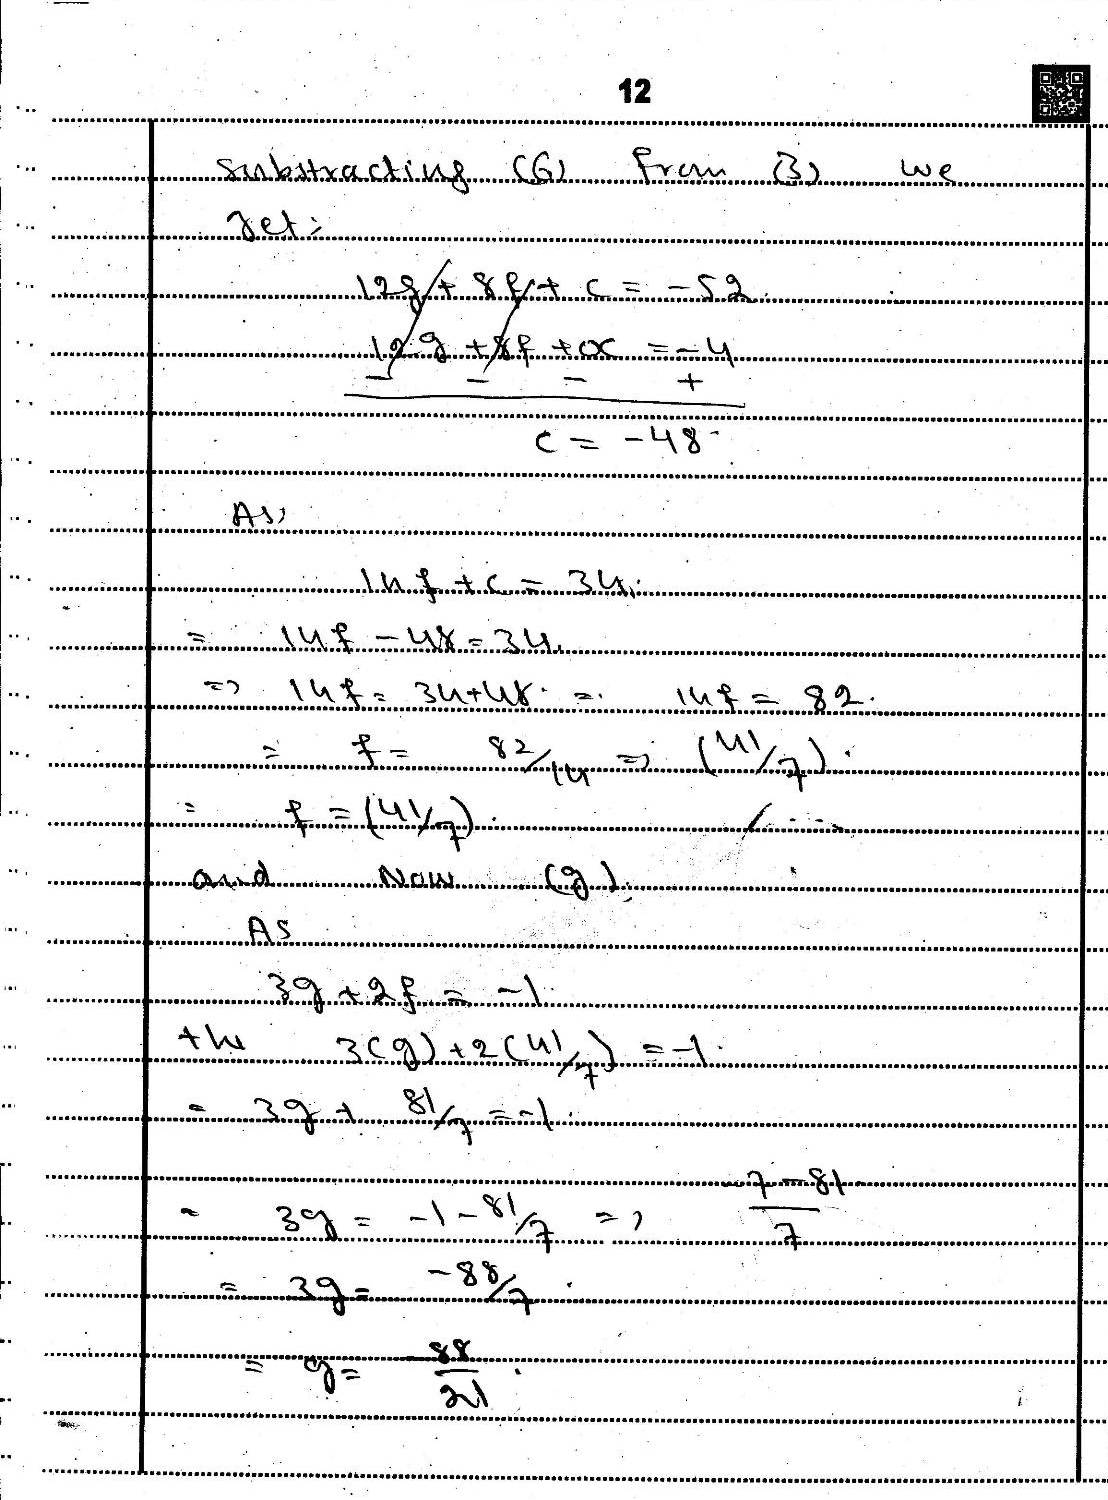 12
Substracting (6) from (3) we
get:
12g + 8f + c = -52
12g + 8f + 0x = -4
- - - +
c = -48
As,
14f + c = 34.
= 14f - 48 = 34.
=> 14f = 34+48. =. 14f = 82.
= f = 82/14 => (41/7).
= f = (41/7).
and Now (g).
As
3g + 2f = -1.
the 3(g) + 2(41/7) = -1.
= 3g + 81/7 = -1.
= 3g = -1 - 81/7 => -7-81/7
= 3g = -88/7.
= g = -88/21.